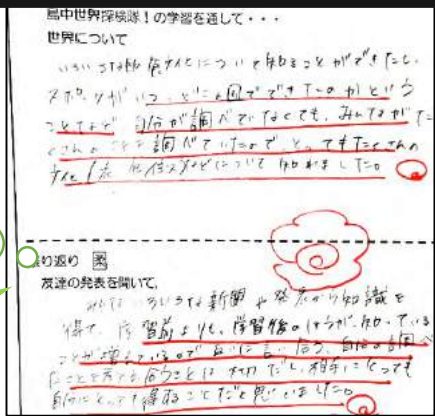 島中世界探検隊!の学習を通して・・・
世界について
いろいろな 文化について知ることができたし、
スポーツがいつ、どこの国でできたのかという
ことなど自分が調べていなくても、みんながた
くさんのことを調べていたので、とてもたくさんの
文化(衣 食 住)などについて知れました。
り返り 柔
友達の発表を聞いて、
みんないろいろな新聞や発表から知識を
得て、 習前よりも、学習後のほうが、知っている
ことが増えているので互いに言い合う、自分の調べ
たことを 合うことは大切だし、相手にとっても
自分にとっても得することだと思いました。